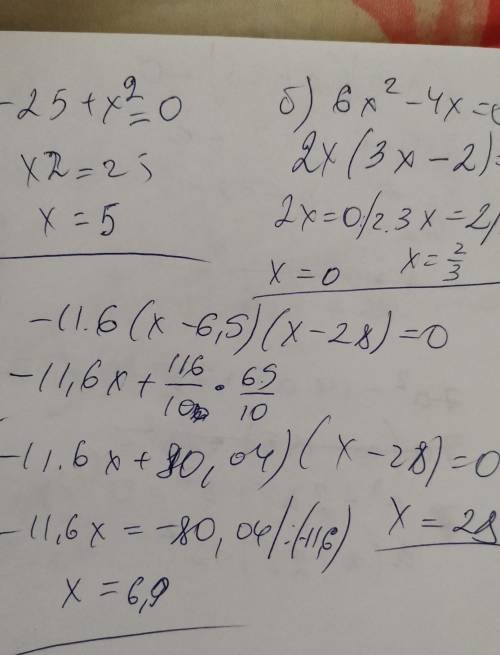 -25+x²=0
x2=25
x=5
б) 6x²-4x=0
2x(3x-2)=
2x=0/:2 . 3x=2/
x=0 x=2/3
-11.6(x-6,5)(x-28)=0
-11,6x+116/10·65/10
-11.6x+80,04)(x-28)=0
-11,6x=-80,04/:(-11,6) x=28
x=6,9